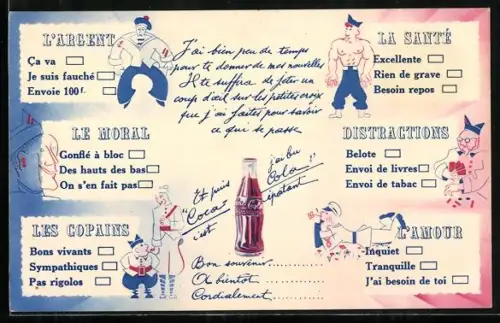 L'ARGENT
Ça va
Je suis fauché
Envoie 100f.
J'ai bien peu de temps
pour te donner de mes nouvelles
Il te suffira de jeter un
coup d'œil sur les petites croix
que j'ai faites pour savoir
ce qui se passe
LA SANTÉ
Excellente
Rien de grave
Besoin repos
LE MORAL
Gonflé à bloc
Des hauts des bas
On s'en fait pas
DISTRACTIONS
Belote
Envoi de livres
Envoi de tabac
Et puis j'ai bu
"Coca Cola"
c'est épatant!
Coca-Cola
LES COPAINS
Bons vivants
Sympathiques
Pas rigolos
Bon souvenir
A bientôt
Cordialement
L'AMOUR
Inquiet
Tranquille
J'ai besoin de toi